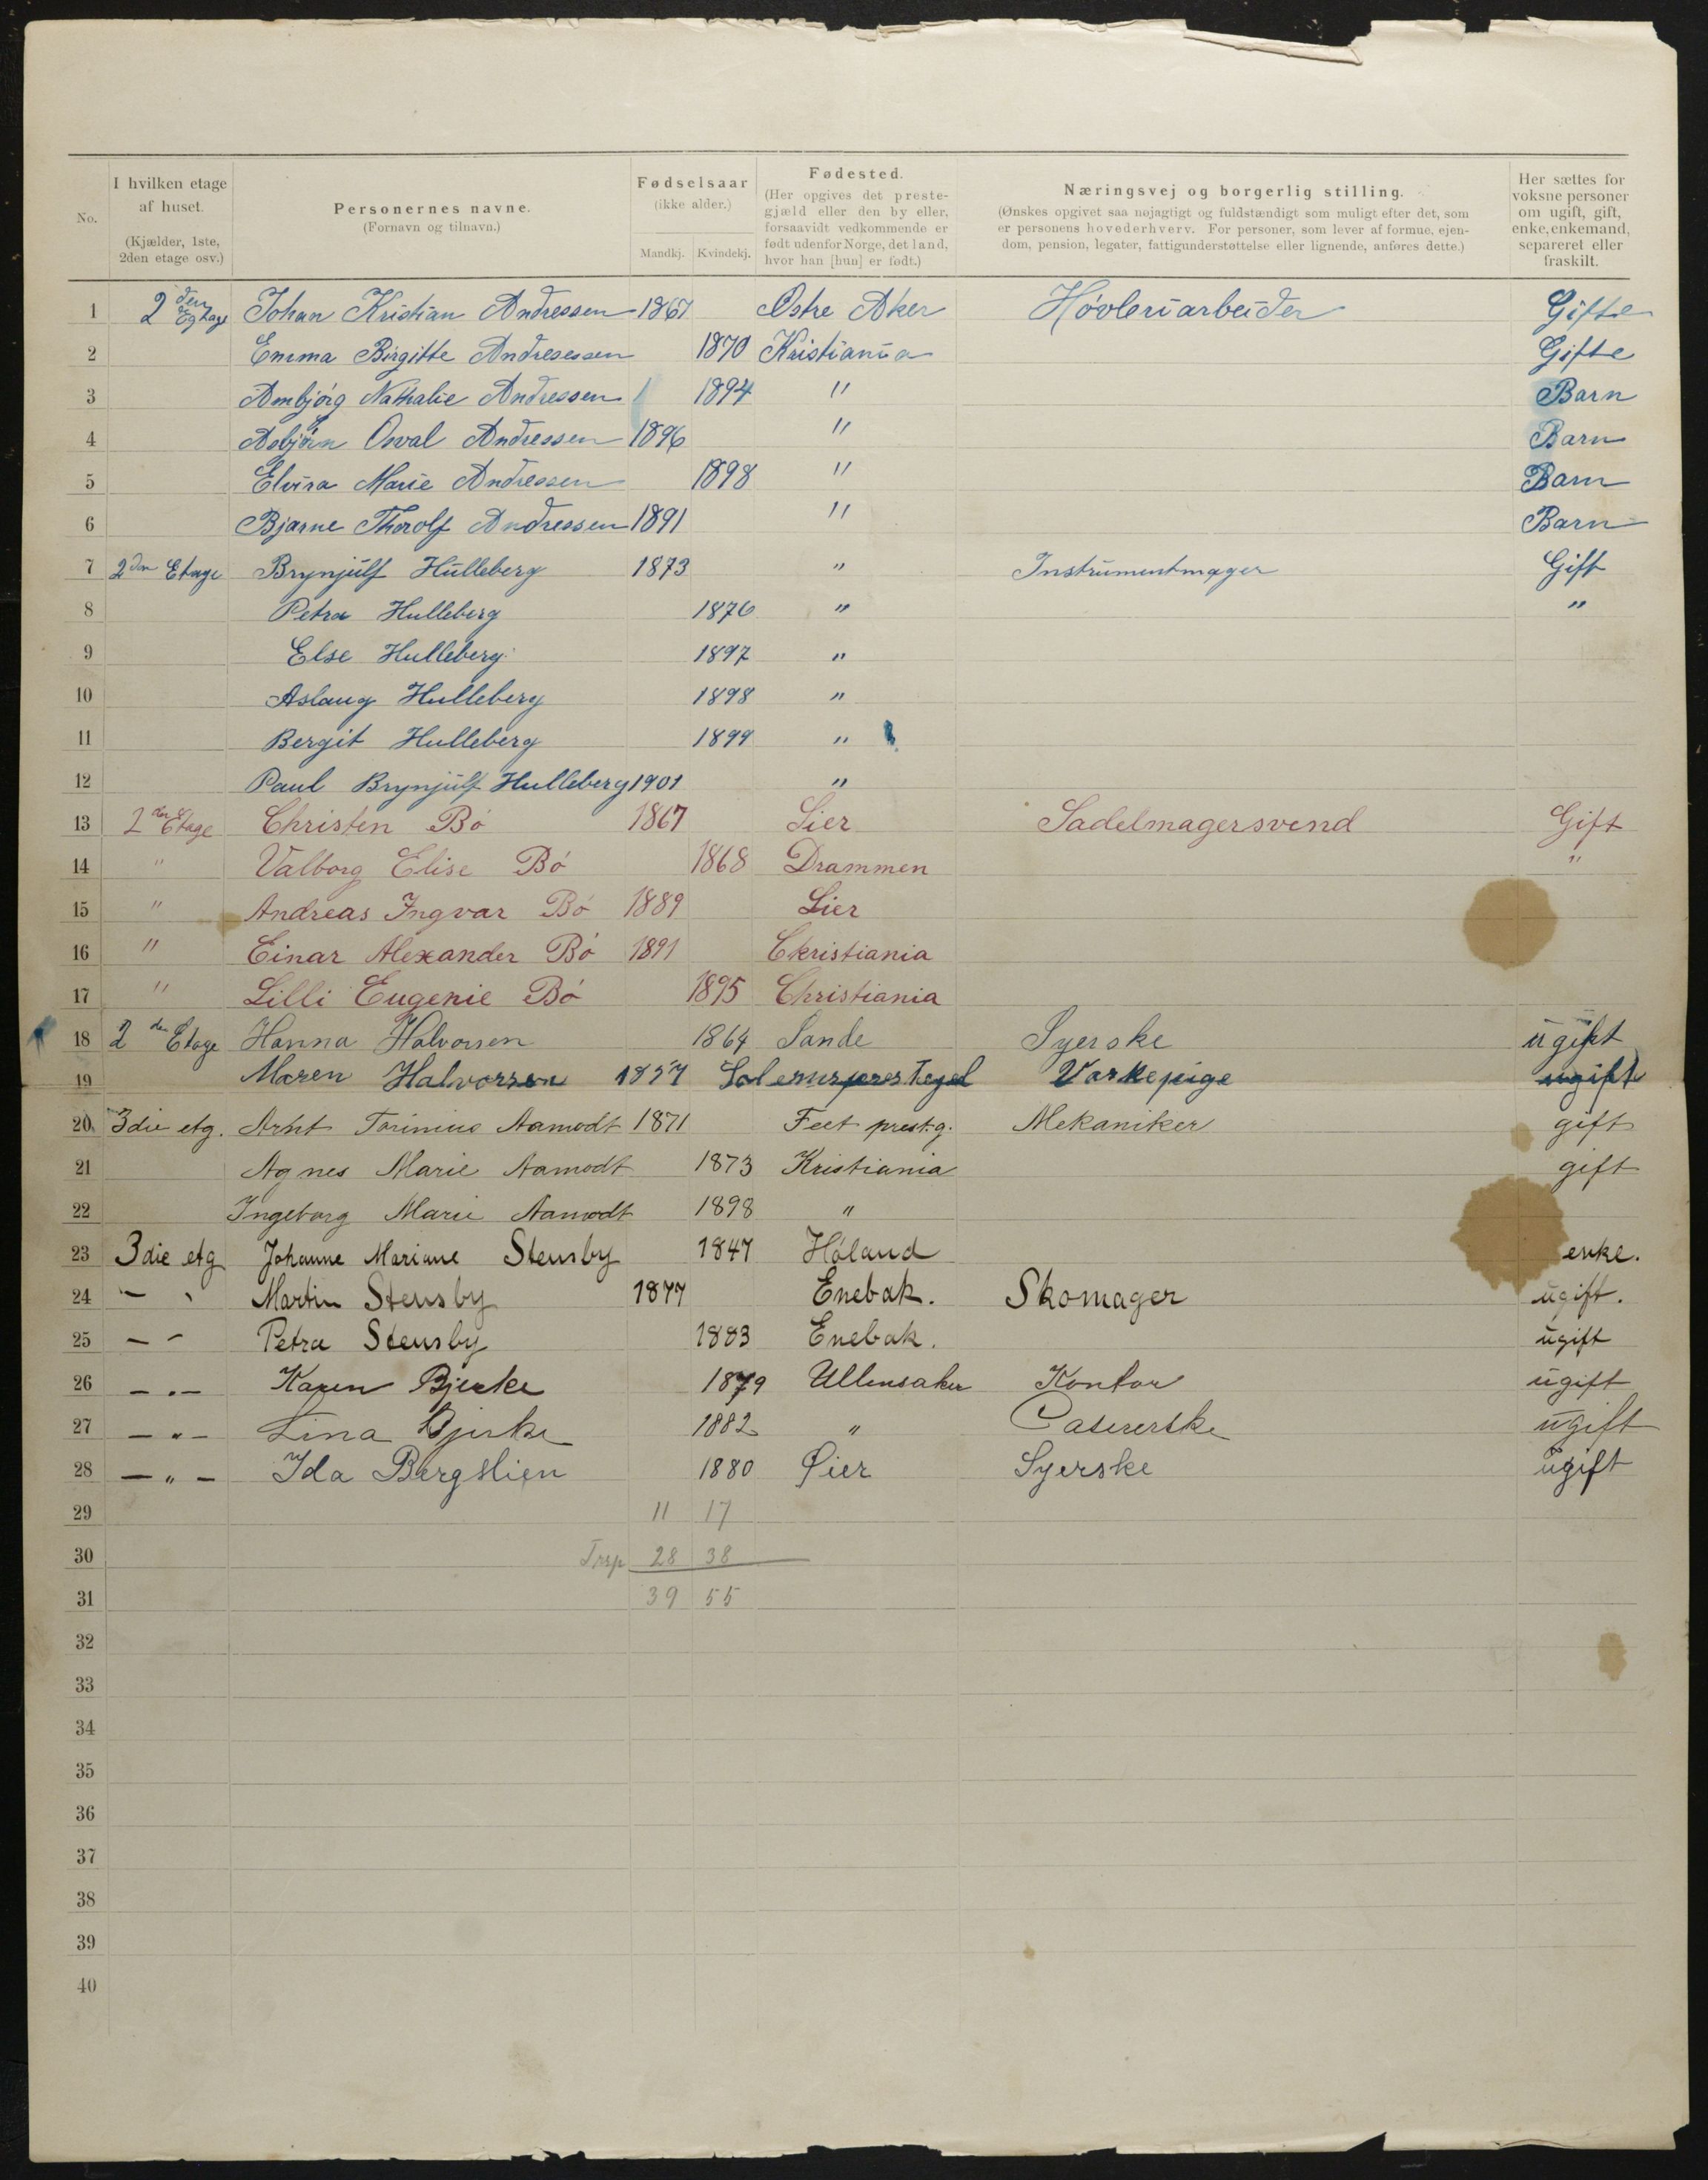 No.
I hvilken etage af huset.
(Kjælder, 1ste, 2den etage osv.)
Personernes navne.
(Fornavn og tilnavn.)
Fødselsaar
(ikke alder.)
Mandkj. Kvindekj.
Fødested.
(Her opgives det prestegjæld eller den by eller, forsaavidt vedkommende er født udenfor Norge, det land, hvor han [hun] er født.)
Næringsvej og borgerlig stilling.
(Ønskes opgivet saa nøjagtigt og fuldstændigt som muligt efter det, som er personens hovederhverv. For personer, som lever af formue, ejendom, pension, legater, fattigunderstøttelse eller lignende, anføres dette.)
Her sættes for voksne personer om ugift, gift, enke, enkemand, separeret eller fraskilt.
1 2 den Johan Kristian Andressen 1867 Østre Aker Høvleriarbeider Gifte
2 Emma Birgitte Andresessen 1870 Kristiania Gifte
3 Ambjørg Nathalie Andressen 1894 " Barn
4 Asbjørn Osval Andressen 1896 " Barn
5 Elvira Marie Andressen 1898 " Barn
6 Bjarne Thorolf Andressen 1891 " Barn
7 2den Etage Brynjulf Hulleberg 1873 " Instrumentmager Gift
8 Petra Hulleberg 1876 " "
9 Else Hulleberg 1897 "
10 Aslaug Hulleberg 1898 "
11 Bergit Hulleberg 1899 "
12 Paul Brynjulf Hulleberg 1901 "
13 2den Etage Christen Bó 1867 Lier Sadelmagersvend Gift
14 " Valborg Elise Bó 1868 Drammen "
15 " Andreas Ingvar Bó 1889 Lier
16 " Einar Alexander Bó 1891 Christiania
17 " Lilli Eugenie Bó 1895 Christiania
18 2den Etage Hanna Halvorsen 1864 Sande Syerske ugift
19 Maren Halvorsen 1857 Vaskepige ugift
20 3die etg. Arnt Torinius Aamodt 1871 Feet prest.g. Mekaniker gift
21 Agnes Marie Aamodt 1873 Kristiania gift
22 Ingeborg Marie Aamodt 1898 "
23 3die etg Johanne Mariane Stensby 1847 Høland enke.
24 – " Martin Stensby 1877 Enebak. Skomager ugift.
25 – " Petra Stensby 1883 Enebak. ugift
26 – " – Karen Bjerke 1879 Ullensaker Kontor ugift
27 – " – Lina Bjerke 1882 " Casererske ugift
28 – " – Ida Bergslien 1880 Øier Syerske ugift
29 11 17
30 Trsp 28 38
31 39 55
32
33
34
35
36
37
38
39
40